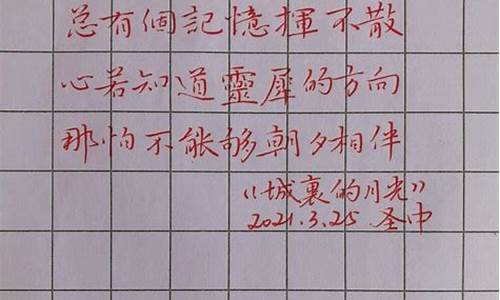 总有個記憶揮不散
心若知道靈犀的方向
那怕不能够朝夕相伴
《城裏的月光》
2021.3.25 圣中